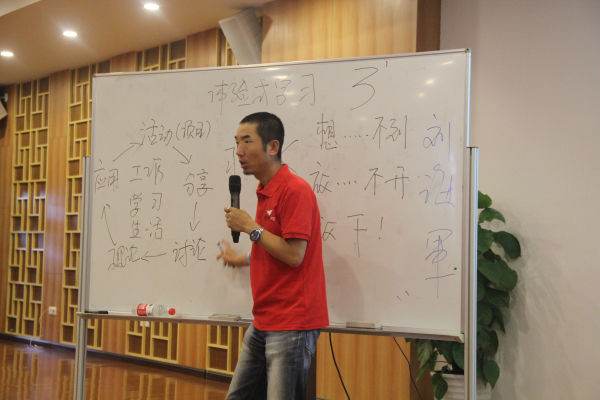 体验式学习 3'
活动(项目)
想……不到
刘
应用 工作 分享
放……不开
学习
生活
军
下!
理论 讨论